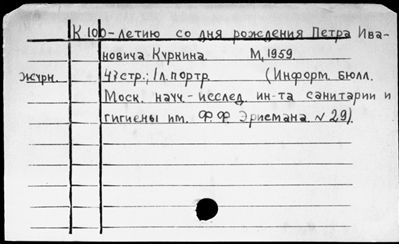 К 100-летию со дня рождения Петра Ива-
новича Куркина. М, 1959.
Журн. 43 стр.; 1 л. портр. (Информ. Бюлл.
Моск. научн.-исслед. ин-та санитарии и
гигиены им. Ф. Ф. Эрисмана. N 29).